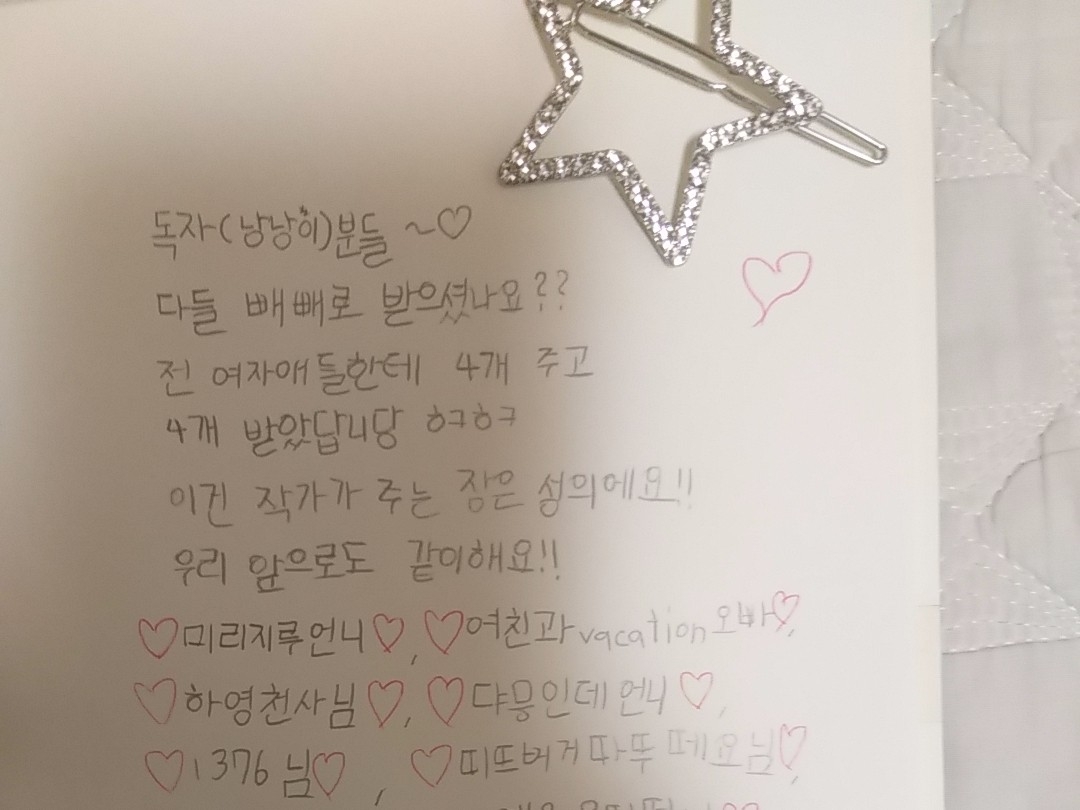 독자(냥냥이)분들 ~♡
다들 빼빼로 받으셨나요??
전 여자애들한테 4개 주고
4개 받았답니당 ㅎㅋㅎㅋ
이건 작가가 주는 작은 성의에요!!
우리 앞으로도 같이해요!!
♡미리지루언니♡, ♡여친과vacation오빠♡,
♡하영천사님♡, ♡댜뮹인데언니♡,
♡1376님♡, ♡띠뜨버거따뚜떼요님♡,